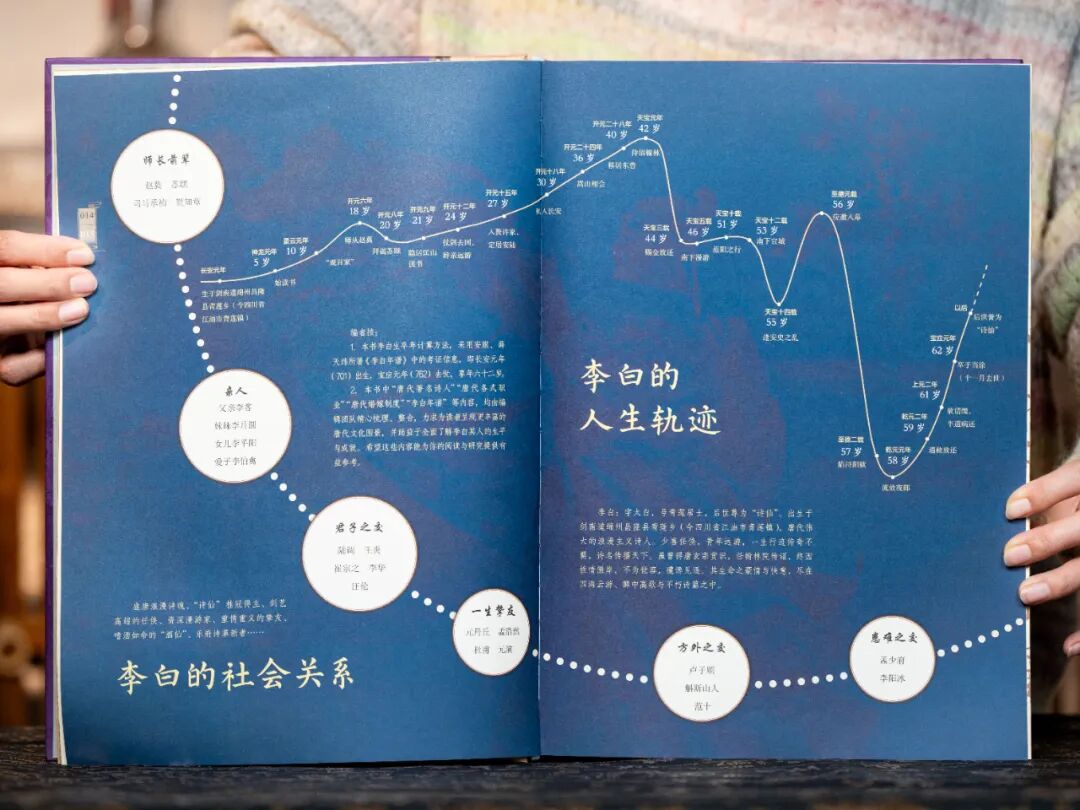 014
师长前辈
赵蕤 苏颋
司马承祯 贺知章
亲人
父亲李客
妹妹李月圆
女儿李平阳
爱子李伯禽
君子之交
陆调 王炎
崔宗之 李华
汪伦
一生挚友
元丹丘 孟浩然
杜甫 元演
方外之交
卢子顺
斛斯山人
范十
患难之交
孟少府
李阳冰
长安元年
生于剑南道绵州昌隆
县青莲乡（今四川省
江油市青莲镇）
神龙元年
5 岁
始读书
景云元年
10 岁
“观百家”
开元六年
18 岁
师从赵蕤
开元八年
20 岁
拜谒苏颋
开元九年
21 岁
隐居匡山
读书
开元十二年
24 岁
仗剑去国，
辞亲远游
开元十五年
27 岁
入赘许家，
定居安陆
开元十八年
30 岁
初入长安
开元二十四年
36 岁
嵩山相会
开元二十八年
40 岁
移居东鲁
天宝元年
42 岁
待诏翰林
天宝三载
44 岁
赐金放还
天宝五载
46 岁
南下漫游
天宝十载
51 岁
幽州之行
天宝十二载
53 岁
南下宣城
天宝十四载
55 岁
逢安史之乱
至德元载
56 岁
应邀入幕
至德二载
57 岁
陷浔阳狱
乾元元年
58 岁
流放夜郎
乾元二年
59 岁
遇赦放还
上元二年
61 岁
欲请缨，
半道病还
宝应元年
62 岁
卒于当涂
（十一月去世）
以后
后世誉为
“诗仙”
编者按：
1. 本书李白生卒年计算方法，采用安旗、薛
天纬所著《李白年谱》中的考证信息，即长安元年
（701）出生，宝应元年（762）去世，享年六十二岁。
2. 本书中“唐代著名诗人”“唐代各式职
业”“唐代婚嫁制度”“李白年谱”等内容，均由编
辑团队精心梳理、整合，力求为读者呈现更丰富的
唐代文化图景，并助益于全面了解李白其人的生平
与成就。希望这些内容能为你的阅读与研究提供有
益参考。
李白的
人生轨迹
李白：字太白，号青莲居士，后世尊为“诗仙”。出生于
剑南道绵州昌隆县青莲乡（今四川省江油市青莲镇），唐代伟
大的浪漫主义诗人。少喜任侠，青年远游，一生行迹传奇不
羁，诗名传播天下。虽曾得唐玄宗赏识，任翰林院待诏，终因
性情傲岸，不为权容，遭谗见逐。其生命之豪情与快意，尽在
四海云游、醉中高歌与不朽诗篇之中。
盛唐浪漫诗魂、“诗仙”桂冠得主、剑艺
高超的任侠、资深漫游家、重情重义的挚友、
嗜酒如命的“酒仙”、乐府诗革新者……
李白的社会关系